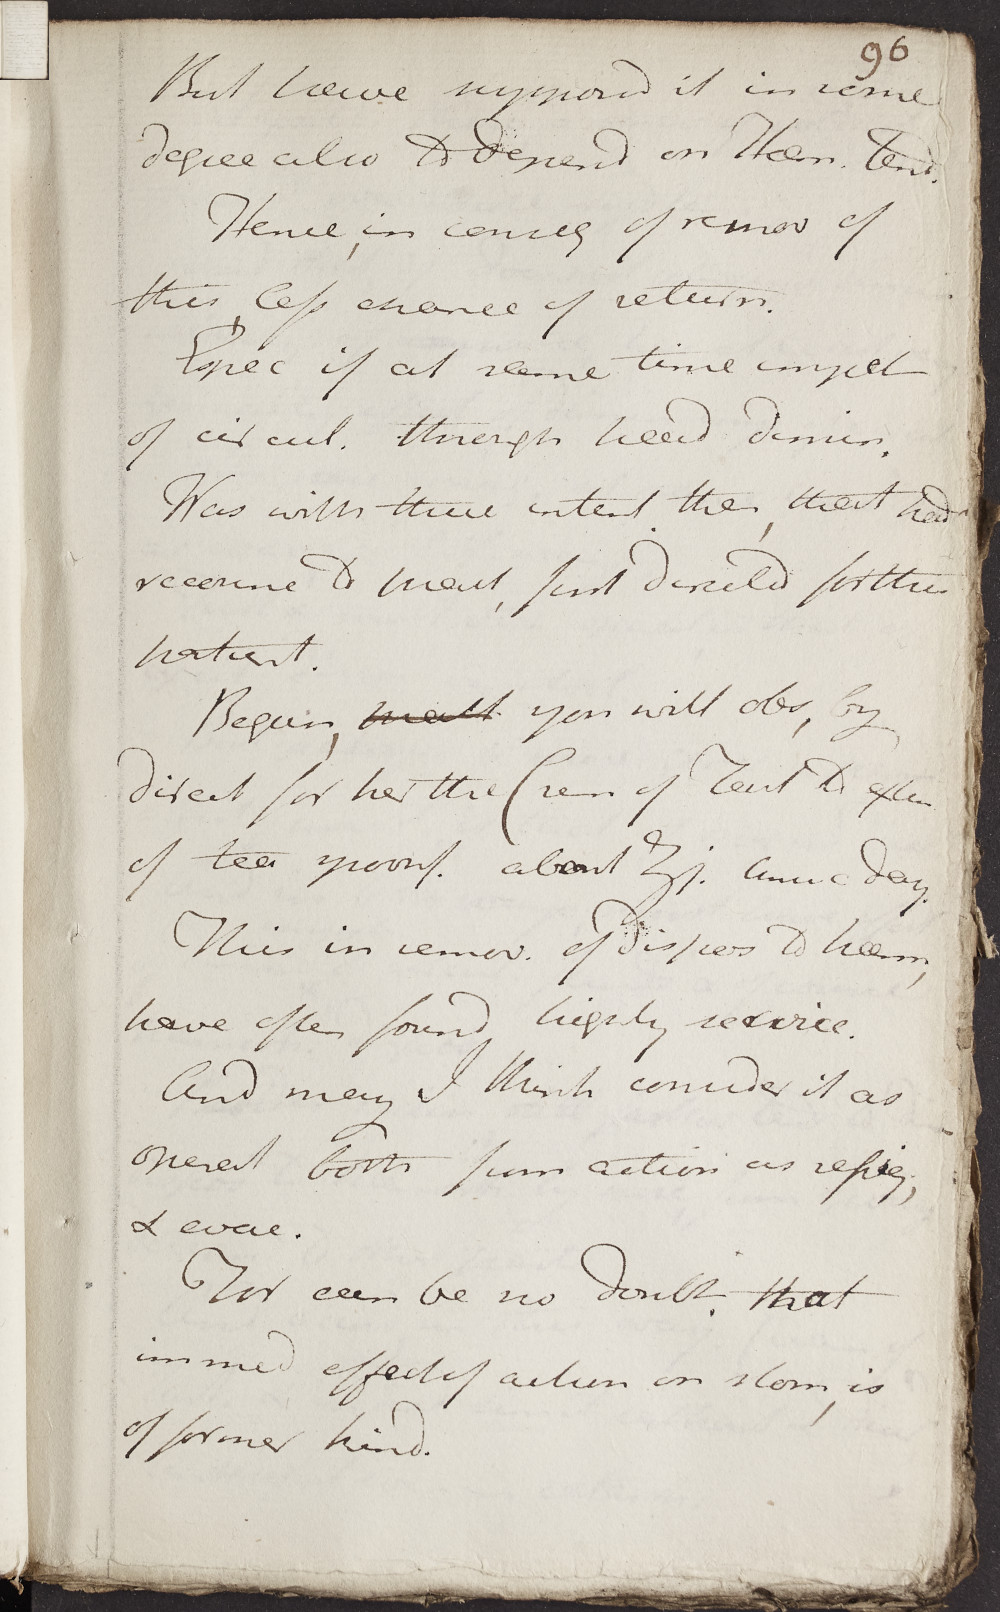 96
But have supposed it in some
degree also to depend on Haem. Tend.
Hence, in conseq of remov of
this, less chance of return.
Espec if at same time impet
of circul. through head dimin.
Was with these intent. then, that had
recourse to pract, first directed for this
patient.
Begun, you will obs, by
direct for her the Crem of Tart to exten
of tea spoonf. about ℥j. a day.
This in remov. of dispos to haem,
have often found highly service.
And may I think consider it as
operat both from action as refrig,
& evac.
Nor can be no doubt, that
immed effect of action on stom, is
of former kind.